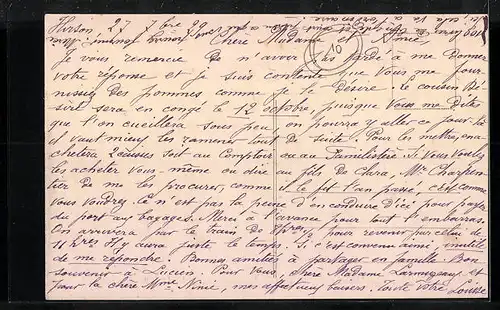 Hirson, 27 7bre 99
Chère Madame et Amie,
je vous remercie de n'avoir pas tardé à me donner
votre réponse et je suis contente que vous me four-
nissiez des pommes comme je le désire. Le cousin Dé-
siré sera en congé le 12 octobre, puisque vous me dites
que l'on cueillera sous peu, on pourra y aller ce jour-là
il vaut mieux les ramener tout de suite. Pour les mettre, on
achètera 2 caisses soit au Comptoir ou au Familistère. Si vous voulez
les acheter vous-même ou dire au fils de Clara, Mr Charpen-
tier de me les procurer, comme il le fit l'an passé, c'est comme
vous voudrez. Ce n'est pas la peine d'en conduire d'ici pour payer
du port aux bagages. Merci à l'avance pour tout l'embarras.
On arrivera par le train de hres, pour revenir par celui de
11 hres il y aura juste le temps. Si c'est convenu ainsi, inutile
de me répondre. Bonnes amitiés à partager en famille. Bon
souvenir à Lucien. Pour vous, chère Madame Larmigeaux et
pour la chère Mme Ninie, mes affectueux baisers. Toute vôtre Louise
10